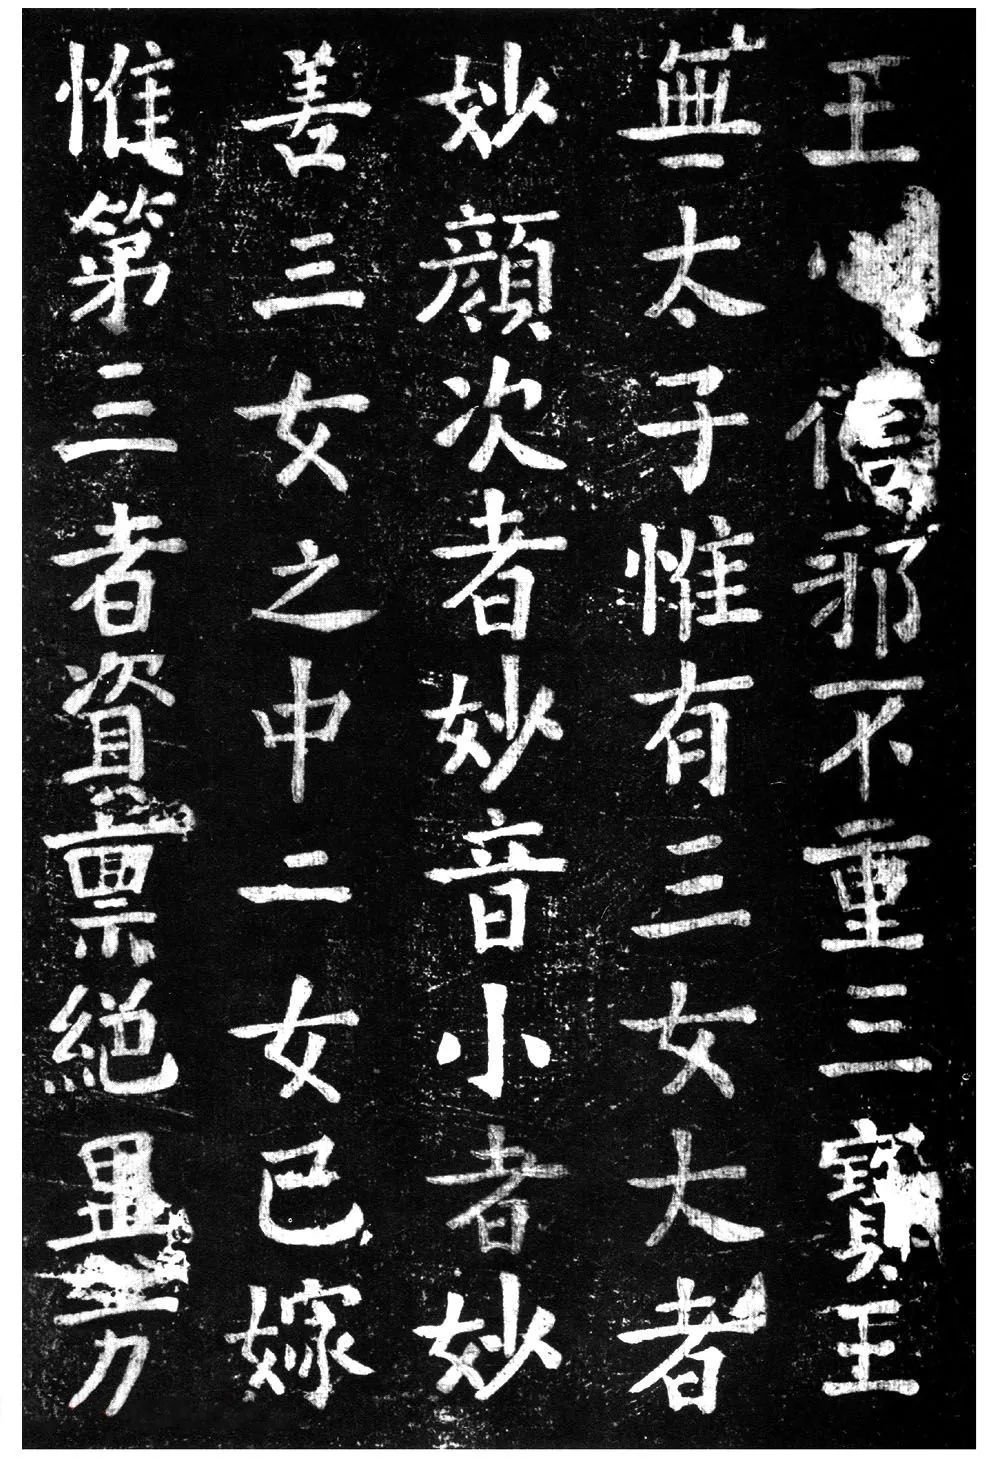 王信邪不重三寶王
無太子惟有三女大者
妙顏次者妙音小者妙
善三女之中二女已嫁
惟第三者資禀絕異方